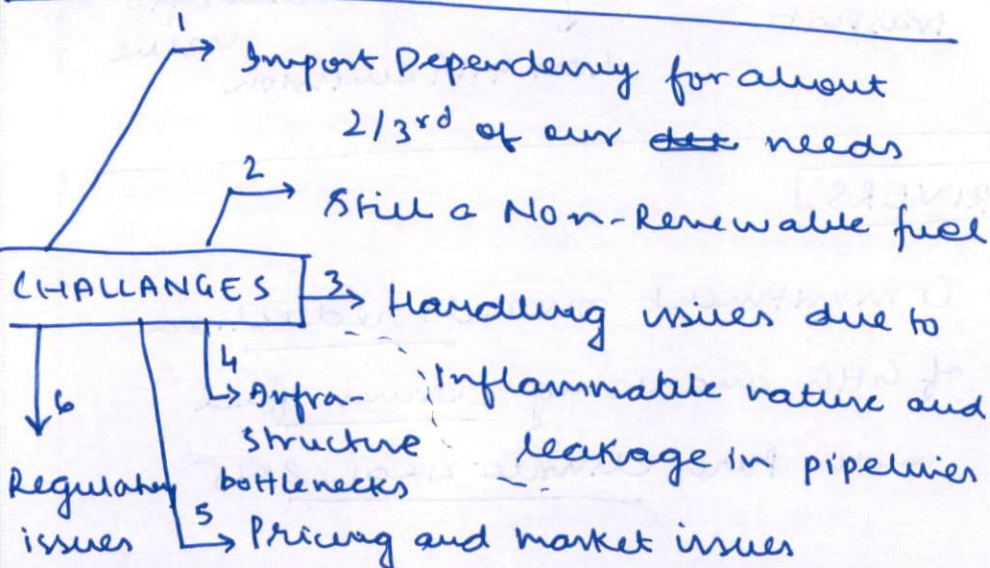 1
Import Dependency for about
2/3rd of our needs
2
Still a Non-Renewable fuel
CHALLANGES
3
Handling issues due to
inflammable nature and
leakage in pipelines
4
Infra-
structure
bottlenecks
5
Pricing and market issues
6
Regulatory
issues
RIVERS
of GHG